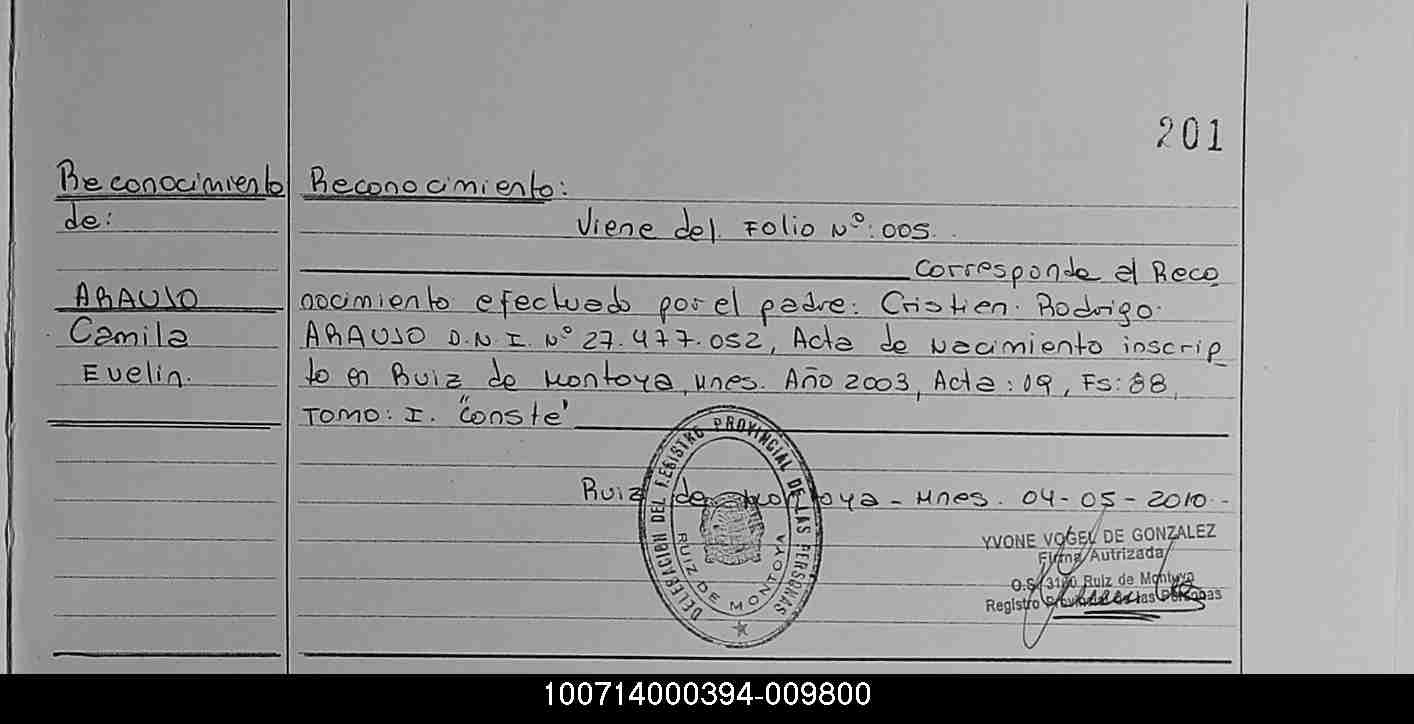 201
Reconocimiento
de:
ARAUJO
Camila
Evelin.
Reconocimiento:
Viene del Folio Nº: 005.
Corresponde al Reco
nocimiento efectuado por el padre: Cristian Rodrigo
ARAUJO D.N.I. Nº 27.477.052, Acta de Nacimiento inscrip
to en Ruiz de Montoya, Mnes. Año 2003, Acta: 09, Fs: 88,
TOMO: I. "Conste"
Ruiz de Montoya - Mnes. 04-05-2010-
DELEGACION DEL REGISTRO PROVINCIAL DE LAS PERSONAS
RUIZ DE MONTOYA
YVONE VOGEL DE GONZALEZ
Firma Autrizada
Ruiz de Montoya
Registro Provincial de las Personas
100714000394-009800